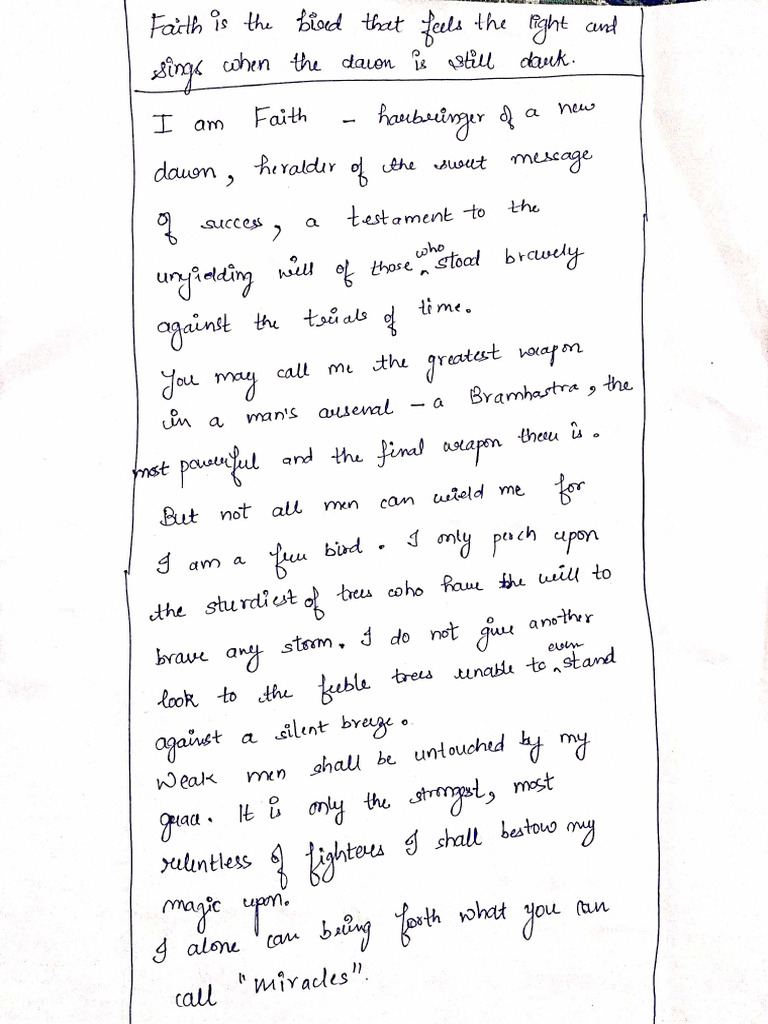 Faith is the bird that feels the light and
sings when the dawn is still dark.
I am Faith - harbringer of a new
dawn, heralder of the sweet message
of success, a testament to the
unyielding will of those who stood bravely
against the trials of time.
You may call me the greatest weapon
in a man's arsenal - a Bramhastra, the
most powerful and the final weapon there is.
But not all men can wield me for
I am a free bird. I only perch upon
the sturdiest of trees who have the will to
brave any storm. I do not give another
look to the feeble trees unable to even stand
against a silent breeze.
Weak men shall be untouched by my
grace. It is only the strongest, most
relentless of fighters I shall bestow my
magic upon.
I alone can bring forth what you can
call "miracles".